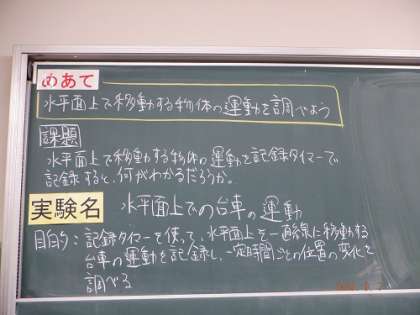 めあて
水平面上で移動する物体の運動を調べよう
課題
水平面上で移動する物体の運動を記録タイマーで
記録すると、何がわかるだろうか。
実験名 水平面上での台車の運動
目的：記録タイマーを使って、水平面上を一直線に移動する
台車の運動を記録し、一定時間ごとの位置の変化を
調べる